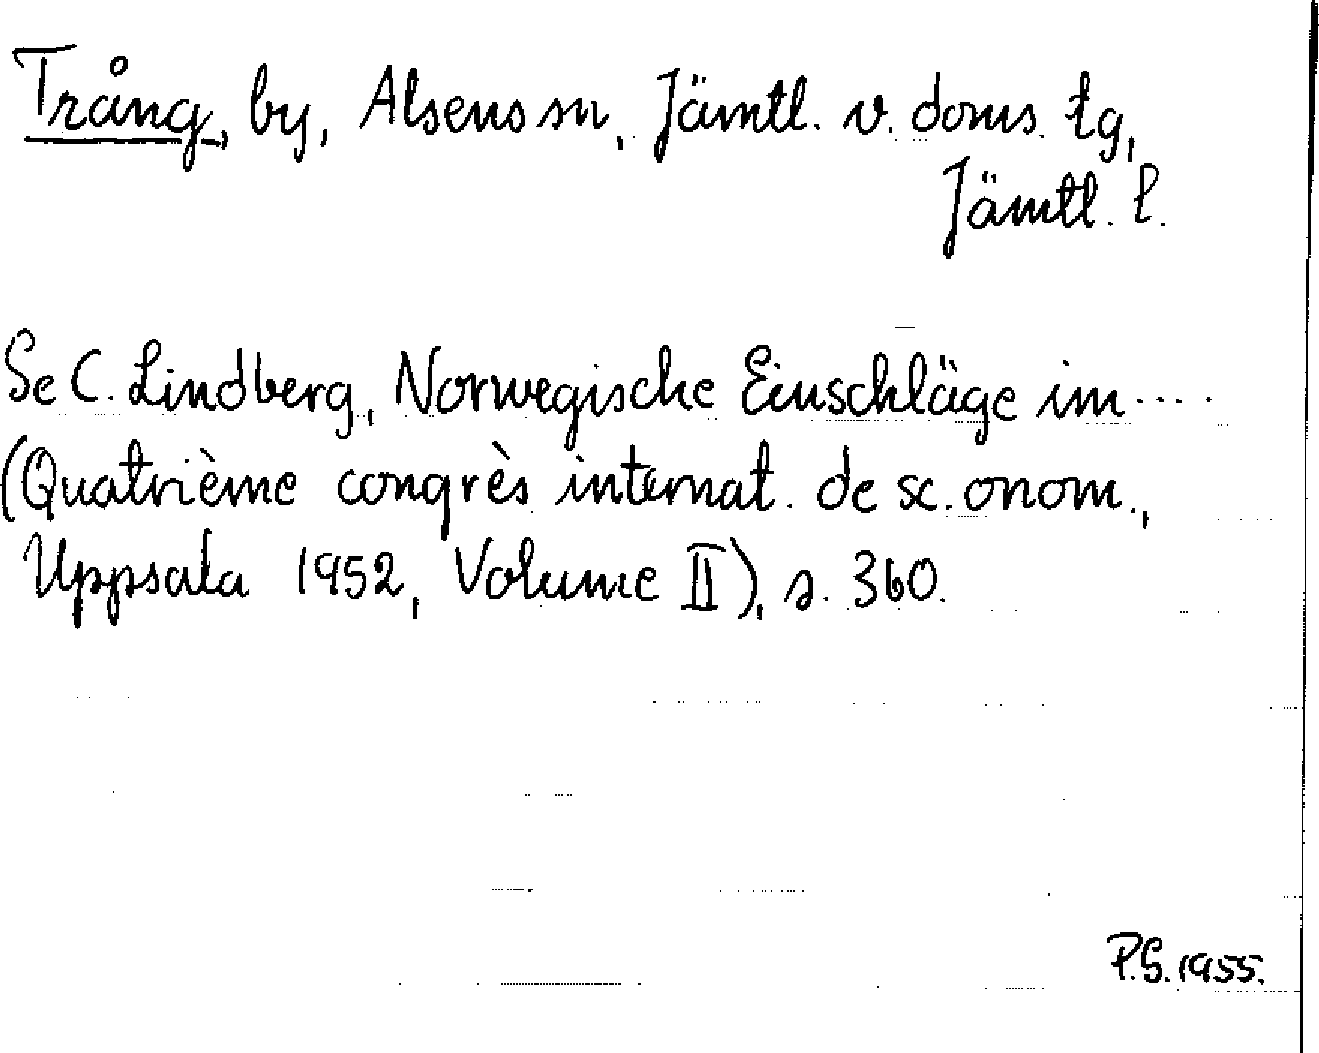 Trång, by, Alsens sn, Jämtl. v. doms. tg,
Jämtl. l.
Se C. Lindberg, Norwegische Einschläge im ....
(Quatrième congrès internat. de sc. onom.,
Uppsala 1952, Volume II), s. 360.
P.S. 1955.